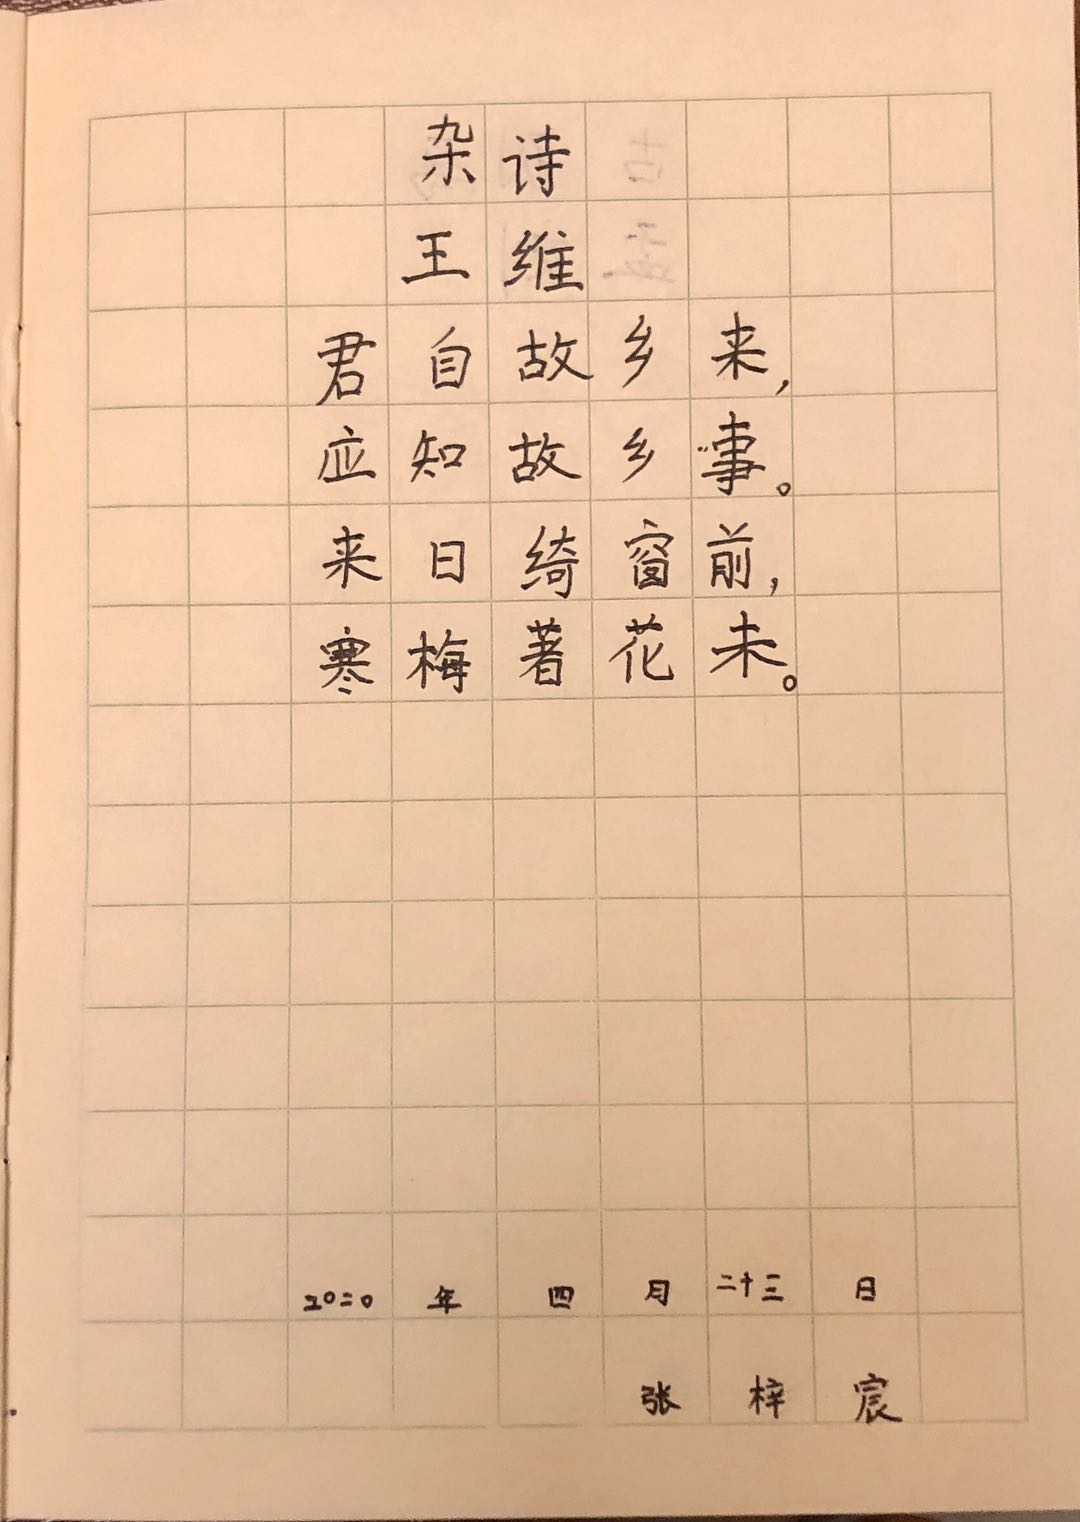 杂诗
王维
君自故乡来,
应知故乡事。
来日绮窗前,
寒梅著花未。
二〇二〇年四月二十三日
张梓宸